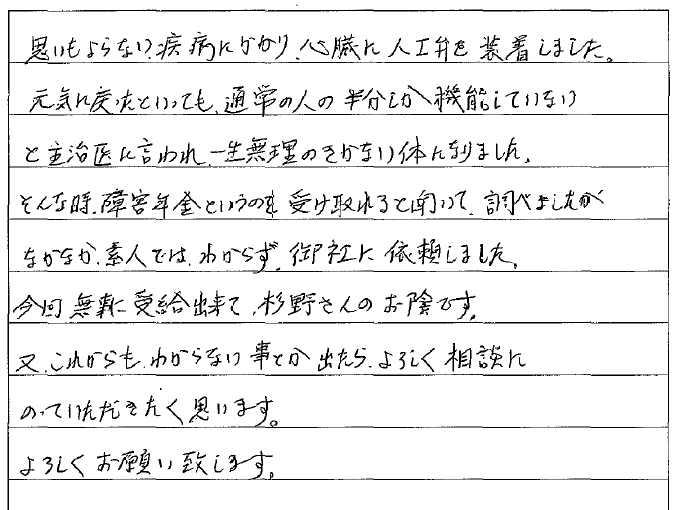 思いもよらない、疾病にかかり、心臓に人工弁を装着しました。
元気に戻ったといっても、通常の人の半分しか機能していない
と主治医に言われ、一生無理のきかない体になりました。
そんな時、障害年金というのを受け取れると聞いて、調べましたが
なかなか、素人では、わからず、御社に依頼しました。
今回無事に受給出来て、杉野さんのお陰です。
又、これからも、わからない事とか出たら、よろしく相談に
のっていただきたく思います。
よろしくお願い致します。